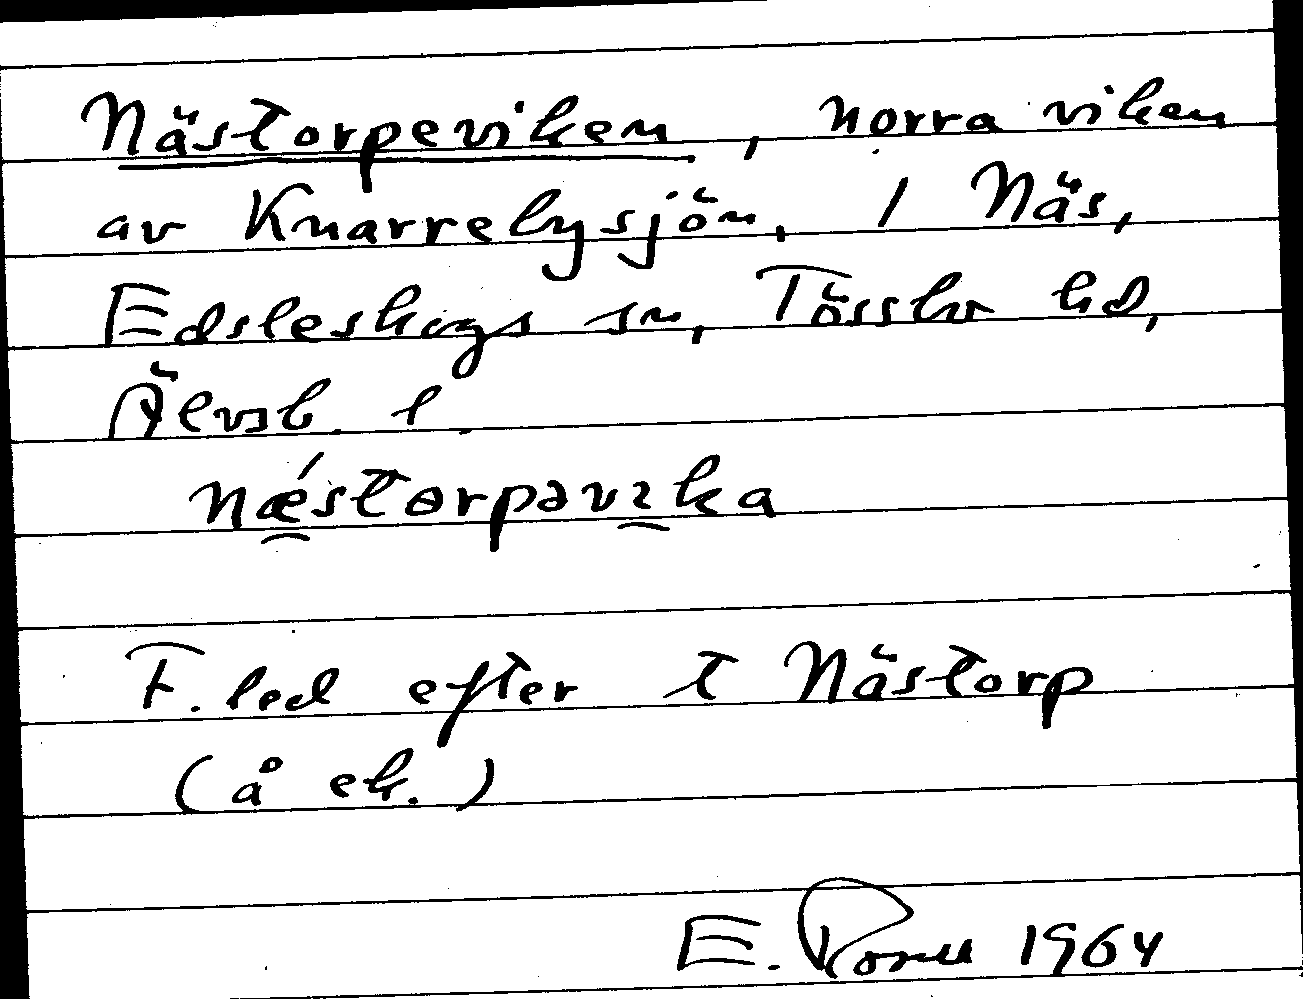 Nästorpeviken, norra viken
av Knarrebysjön, 1 Näs,
Edsleskogs sn, Tössbo hd,
Älvsb. l.
næ̂́storpəvıka
F. led efter t Nästorp
(å ek.)
E. 1964